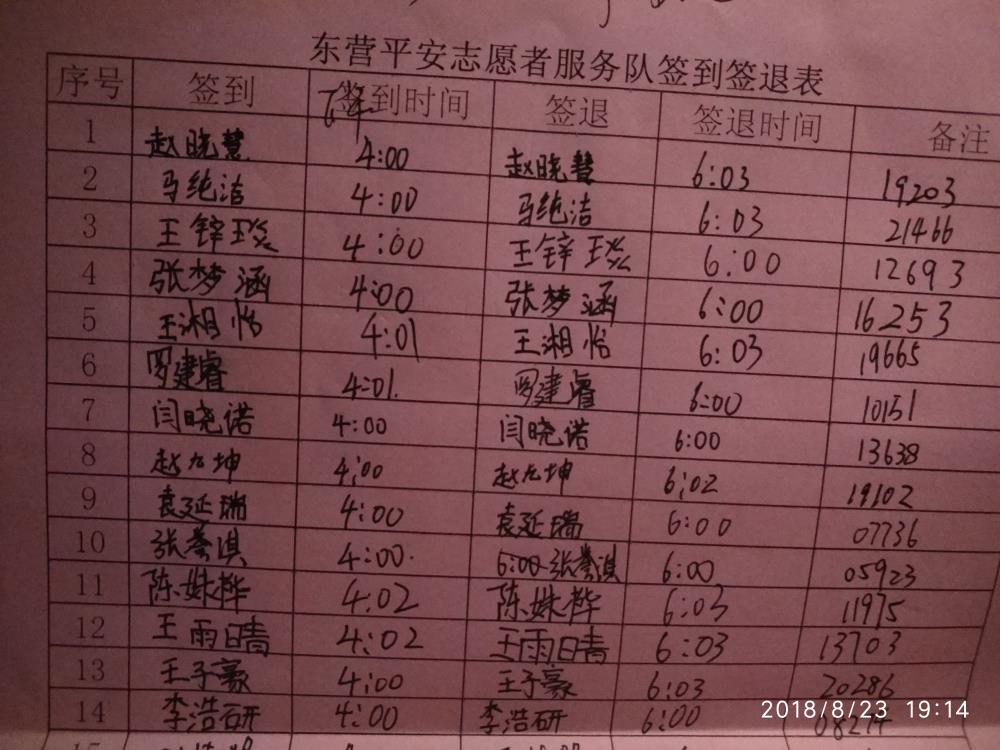 东营平安志愿者服务队签到签退表
序号 签到 签到时间 签退 签退时间 备注
下午
1 赵晓慧 4:00 赵晓慧 6:03 19203
2 马纯洁 4:00 马纯洁 6:03 21466
3 王锌瑶 4:00 王锌瑶 6:00 12693
4 张梦涵 4:00 张梦涵 6:00 16253
5 王湘怡 4:01 王湘怡 6:03 19665
6 罗建睿 4:01 罗建睿 6:00 10151
7 闫晓诺 4:00 闫晓诺 6:00 13638
8 赵九坤 4:00 赵九坤 6:02 19102
9 袁延瑞 4:00 袁延瑞 6:00 07736
10 张誊淇 4:00 6:00 张誊淇 6:00 05923
11 陈姝桦 4:02 陈姝桦 6:03 11975
12 王雨晴 4:02 王雨晴 6:03 13703
13 王子豪 4:00 王子豪 6:03 20286
14 李浩研 4:00 李浩研 6:00
2018/8/23 19:14